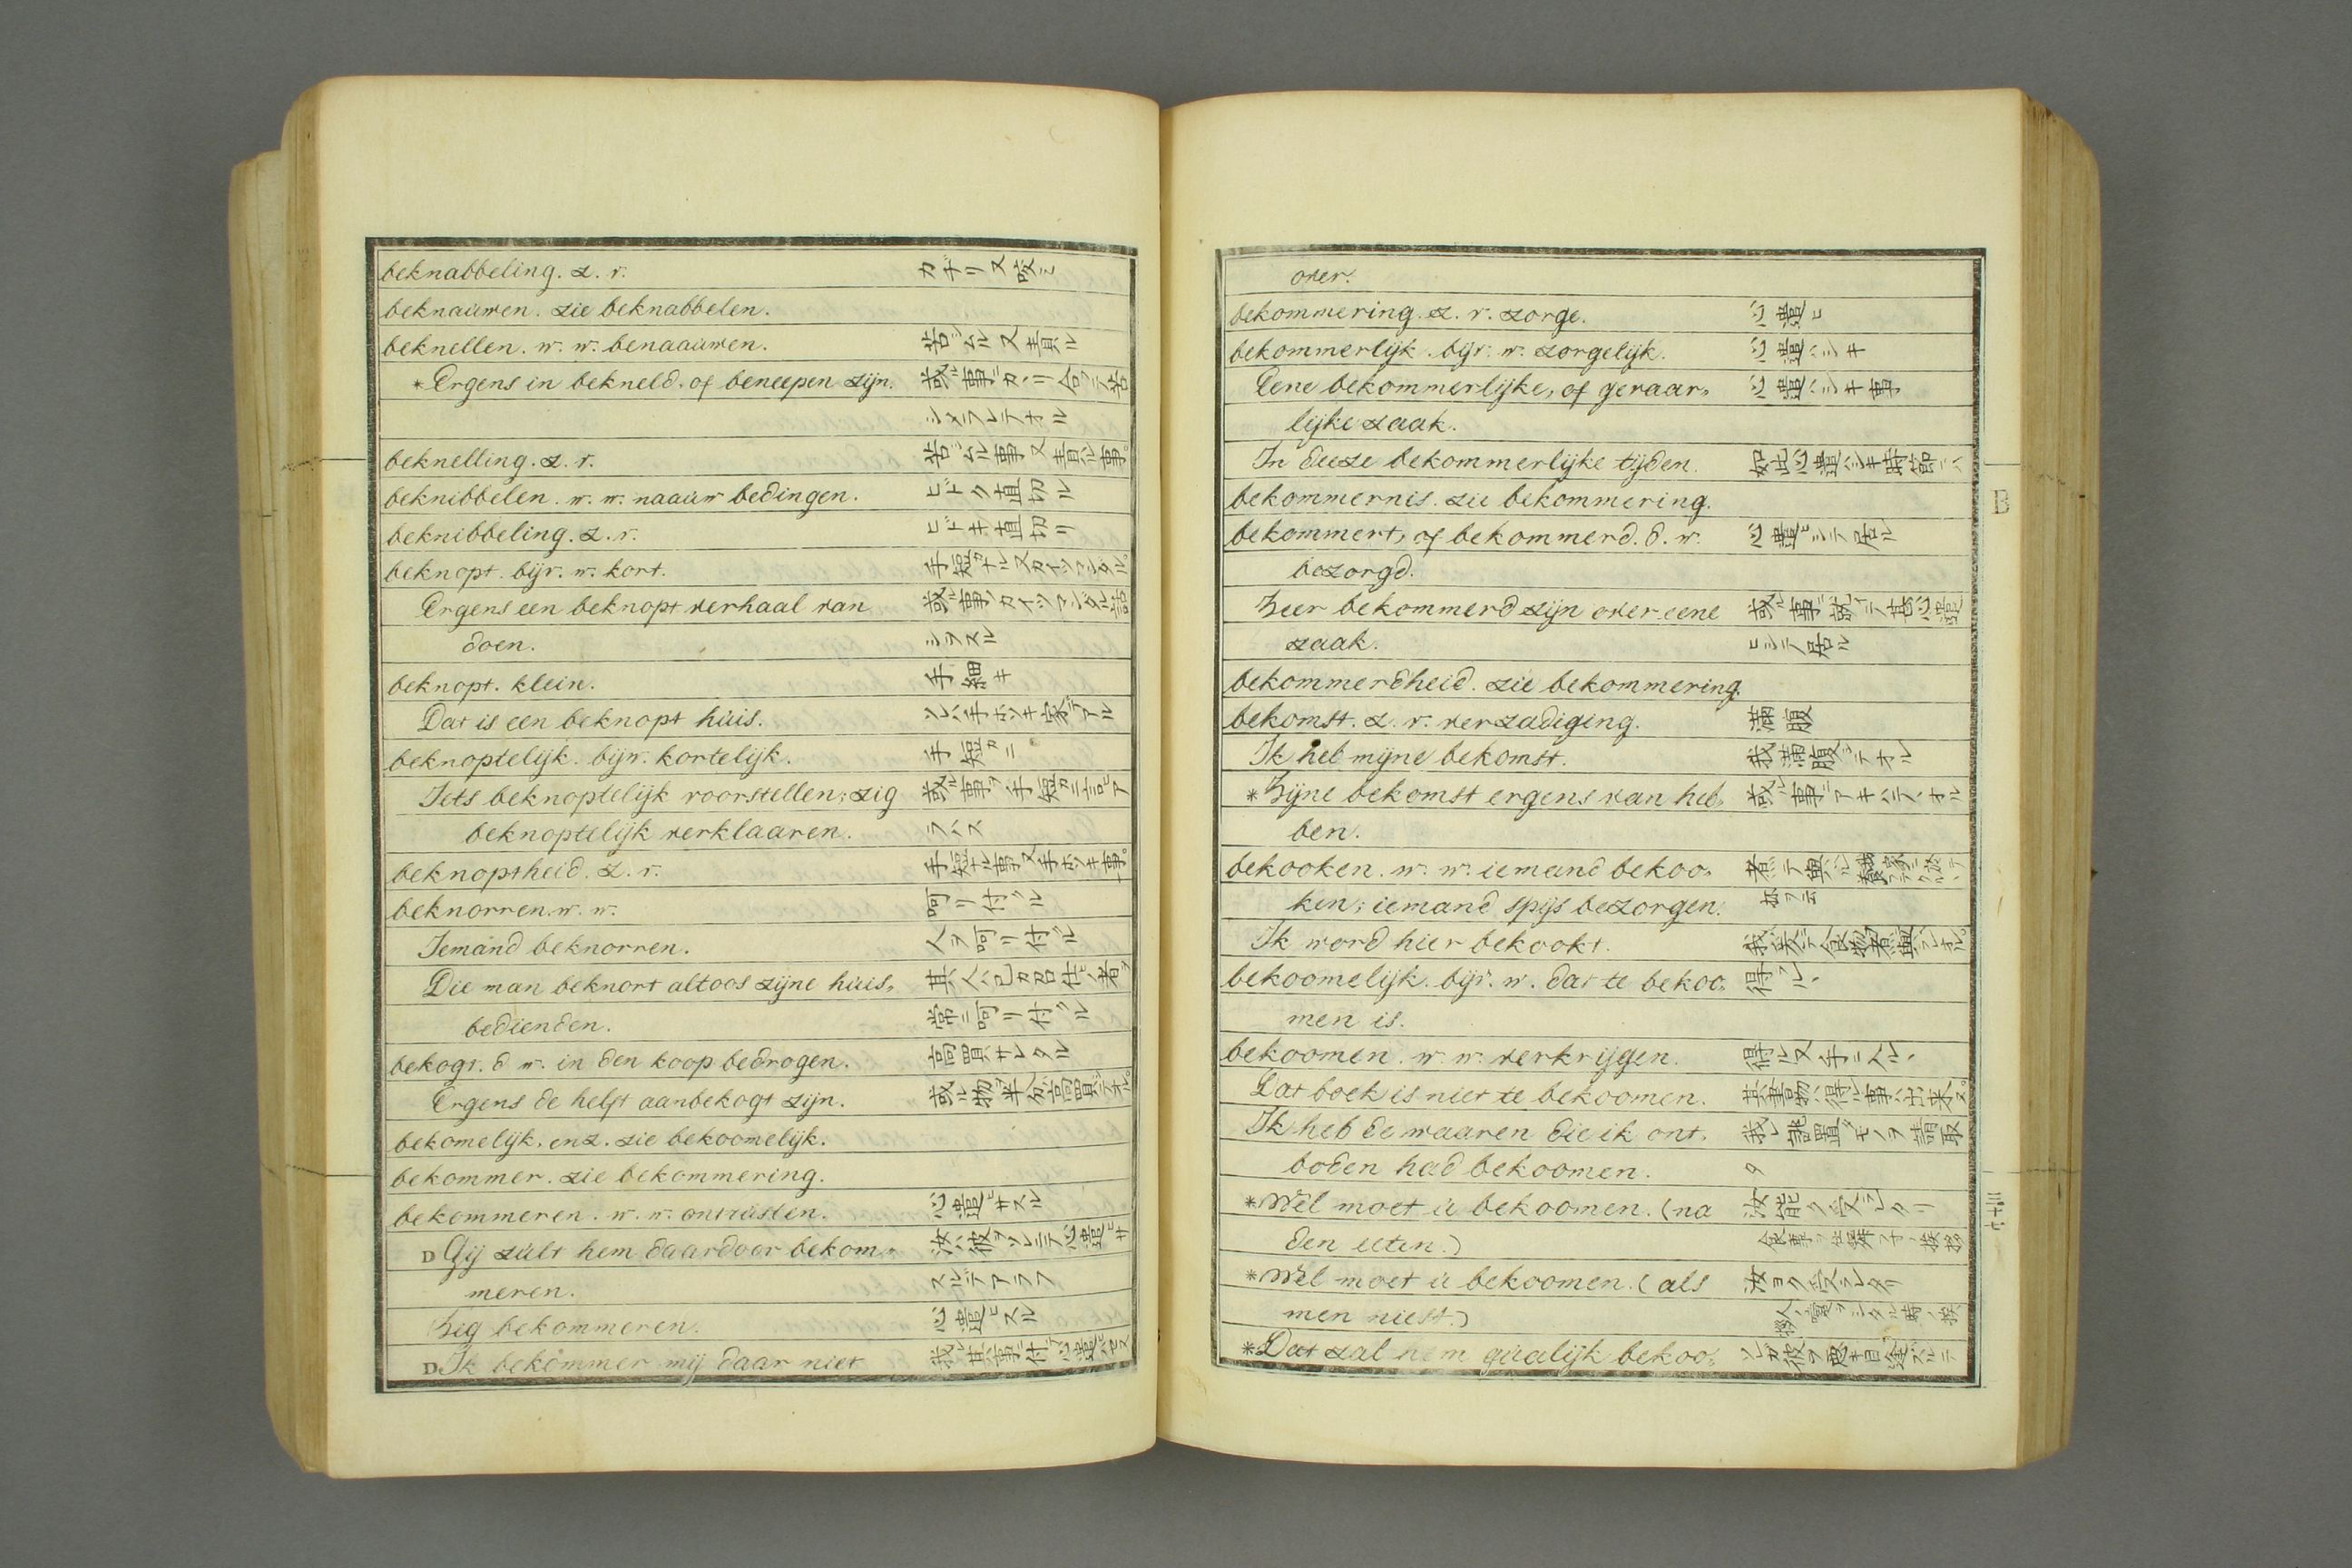 beknabbeling. z. v. カヂリ又咬ミ
beknaüwen. zie beknabbelen.
beknellen. w. w. benaaüwen. 苦シムル又責ル
*Ergens in bekneld. of beneepen zijn. 或ル事ニカヽリ合テ苦
シメラレテオル
beknelling. z. v. 苦シムル事又責ル事。
beknibbelen. w. w. naaüw bedingen. ヒドク直切ル
beknibbeling. z. v. ヒドキ直切リ
beknopt. bijv. w. kort. 手短ナル又カイツマンダル。
Ergens een beknopt verhaal van 或ル事ノカイツマンダル話
doen. シヲスル
beknopt. klein. 手細キ
Dat is een beknopt hüis. ソレハ手ホソキ家デアル
beknoptelijk. bijw. kortelijk. 手短カニ
Iets beknoptelijk voorstellen; zig 或ル事ヲ手短カニ言ヒア
beknoptelijk verklaaren. ラハス
beknoptheid. z. v. 手短ナル事又手ホソキ事。
beknorren. w. w. 呵リ付ケル
Iemand beknorren. 人ヲ呵リ付ケル
Die man beknort altoos zijne hüis„ 其人ハ己カ召仕ヒノ者ヲ
bedienden. 常ニ呵リ付ケル
bekogt. d. w. in den koop bedrogen. 高買サレタル
Ergens de helft aanbekogt zijn. 或ル物ヲ半分高買シテオル。
bekomelijk, enz. zie bekoomelijk.
bekommer. zie bekommering.
bekommeren. w. w. ontrüsten. 心遣ヒサスル
D Gij zült hem daardoor bekom„ 汝ハ彼ヲソレニテ心遣ヒサ
meren. スルデアラフ
Zig bekommeren. 心遣ヒスル
D Ik bekommer mij daar niet 我レ其事ニ付テ心遣ヒセス
over.
bekommering. z. v. zorge. 心遣ヒ
bekommerlijk. bijv. w. zorgelijk. 心遣ハシキ
Eene bekommerlijke, of gevaar„ 心遣ハシキ事
lijke zaak.
In deeze bekommerlijke tijden. 如此心遣ハシキ時節ニハ
bekommernis. zie bekommering.
B
bekommert, of bekommerd. d. w. 心遣ヒシテ居ル
bezorgd.
Zeer bekommerd zijn over eene 或ル事ニ就イテ甚心遣
zaak. ヒシテ居ル
bekommerdheid. zie bekommering.
bekomst. z. v. verzadiging. 満腹
Ik heb mijne bekomst. 我満腹シテオル
*Zijne bekomst ergens van heb„ 或ル事ニアキハテヽオル
ben.
bekooken. w. w. iemand bekoo„
ken; iemand spijs bezorgen.
Ik word hier bekookt.
bekoomelijk. bijv. w. dat te bekoo„
men is.
bekoomen. w. w. verkrijgen. 得ル又手ニ入ル、
Dat boek is niet te bekoomen. 其書物ハ得ル事ハ出来ヌ。
Ik heb de waaren die ik ont„ 我レ誂置シモノヲ請取
boden had bekoomen. タ
*Wel moet ü bekoomen. (na
den eeten.)
*Wel moet ü bekoomen. (als
men niest.)
*Dat zal hem qüalijk bekoo„
三十七